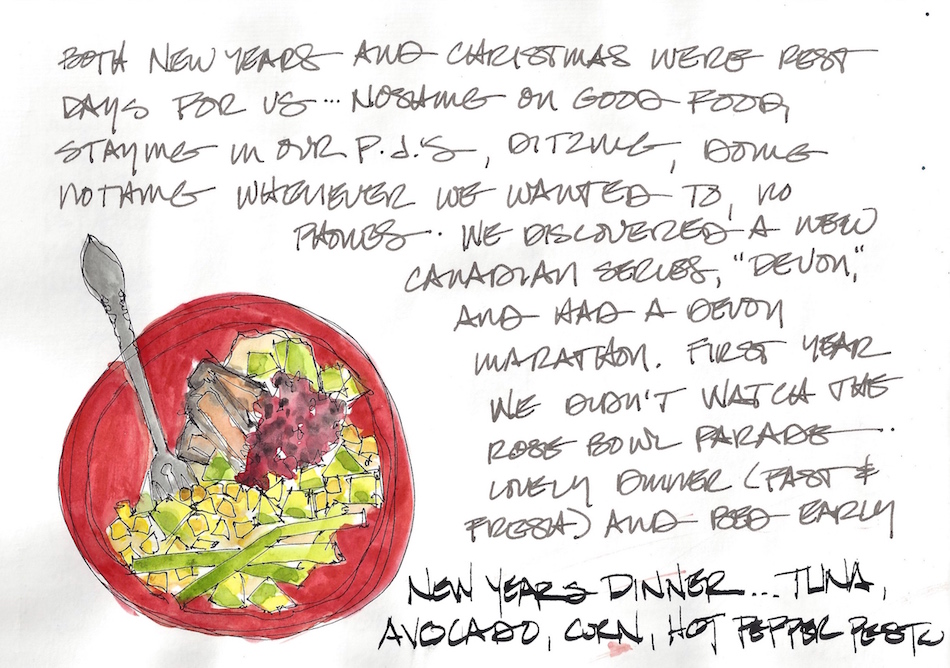 BOTH NEW YEARS AND CHRISTMAS WERE REST
DAYS FOR US... NOSHING ON GOOD FOOD,
STAYING IN OUR P.J.'S, DITZING, DOING
NOTHING WHENEVER WE WANTED TO, NO
PHONES.. WE DISCOVERED A NEW
CANADIAN SERIES, "DEVON,"
AND HAD A DEVON
MARATHON. FIRST YEAR
WE DIDN'T WATCH THE
ROSE BOWL PARADE..
LOVELY DINNER (FAST &
FRESH) AND BED EARLY
NEW YEARS DINNER... TUNA,
AVOCADO, CORN, HOT PEPPER PESTO